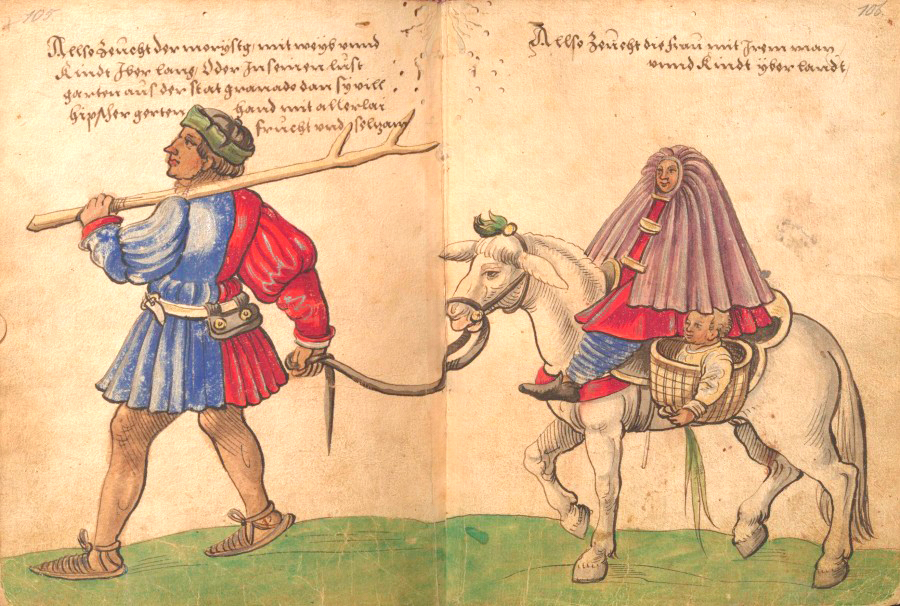 105.
Allso Zeucht der morystg mit weyb vnnd
Kindt Jber lang, Oder Jn seinen lust
garten aus der stat granado dan sy vill
hipscher gerten hand mit allerlai
frucht vnd selzam
106.
Allso Zeucht die frau mit Jrem man
vnnd Kindt yber landt